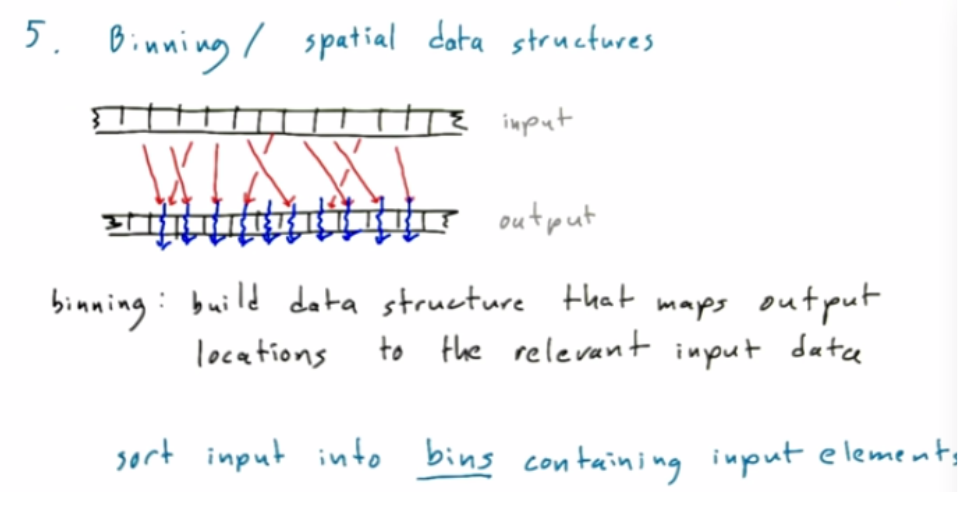 5. Binning / spatial data structures
input
output
binning: build data structure that maps output
locations to the relevant input data
sort input into bins containing input elements